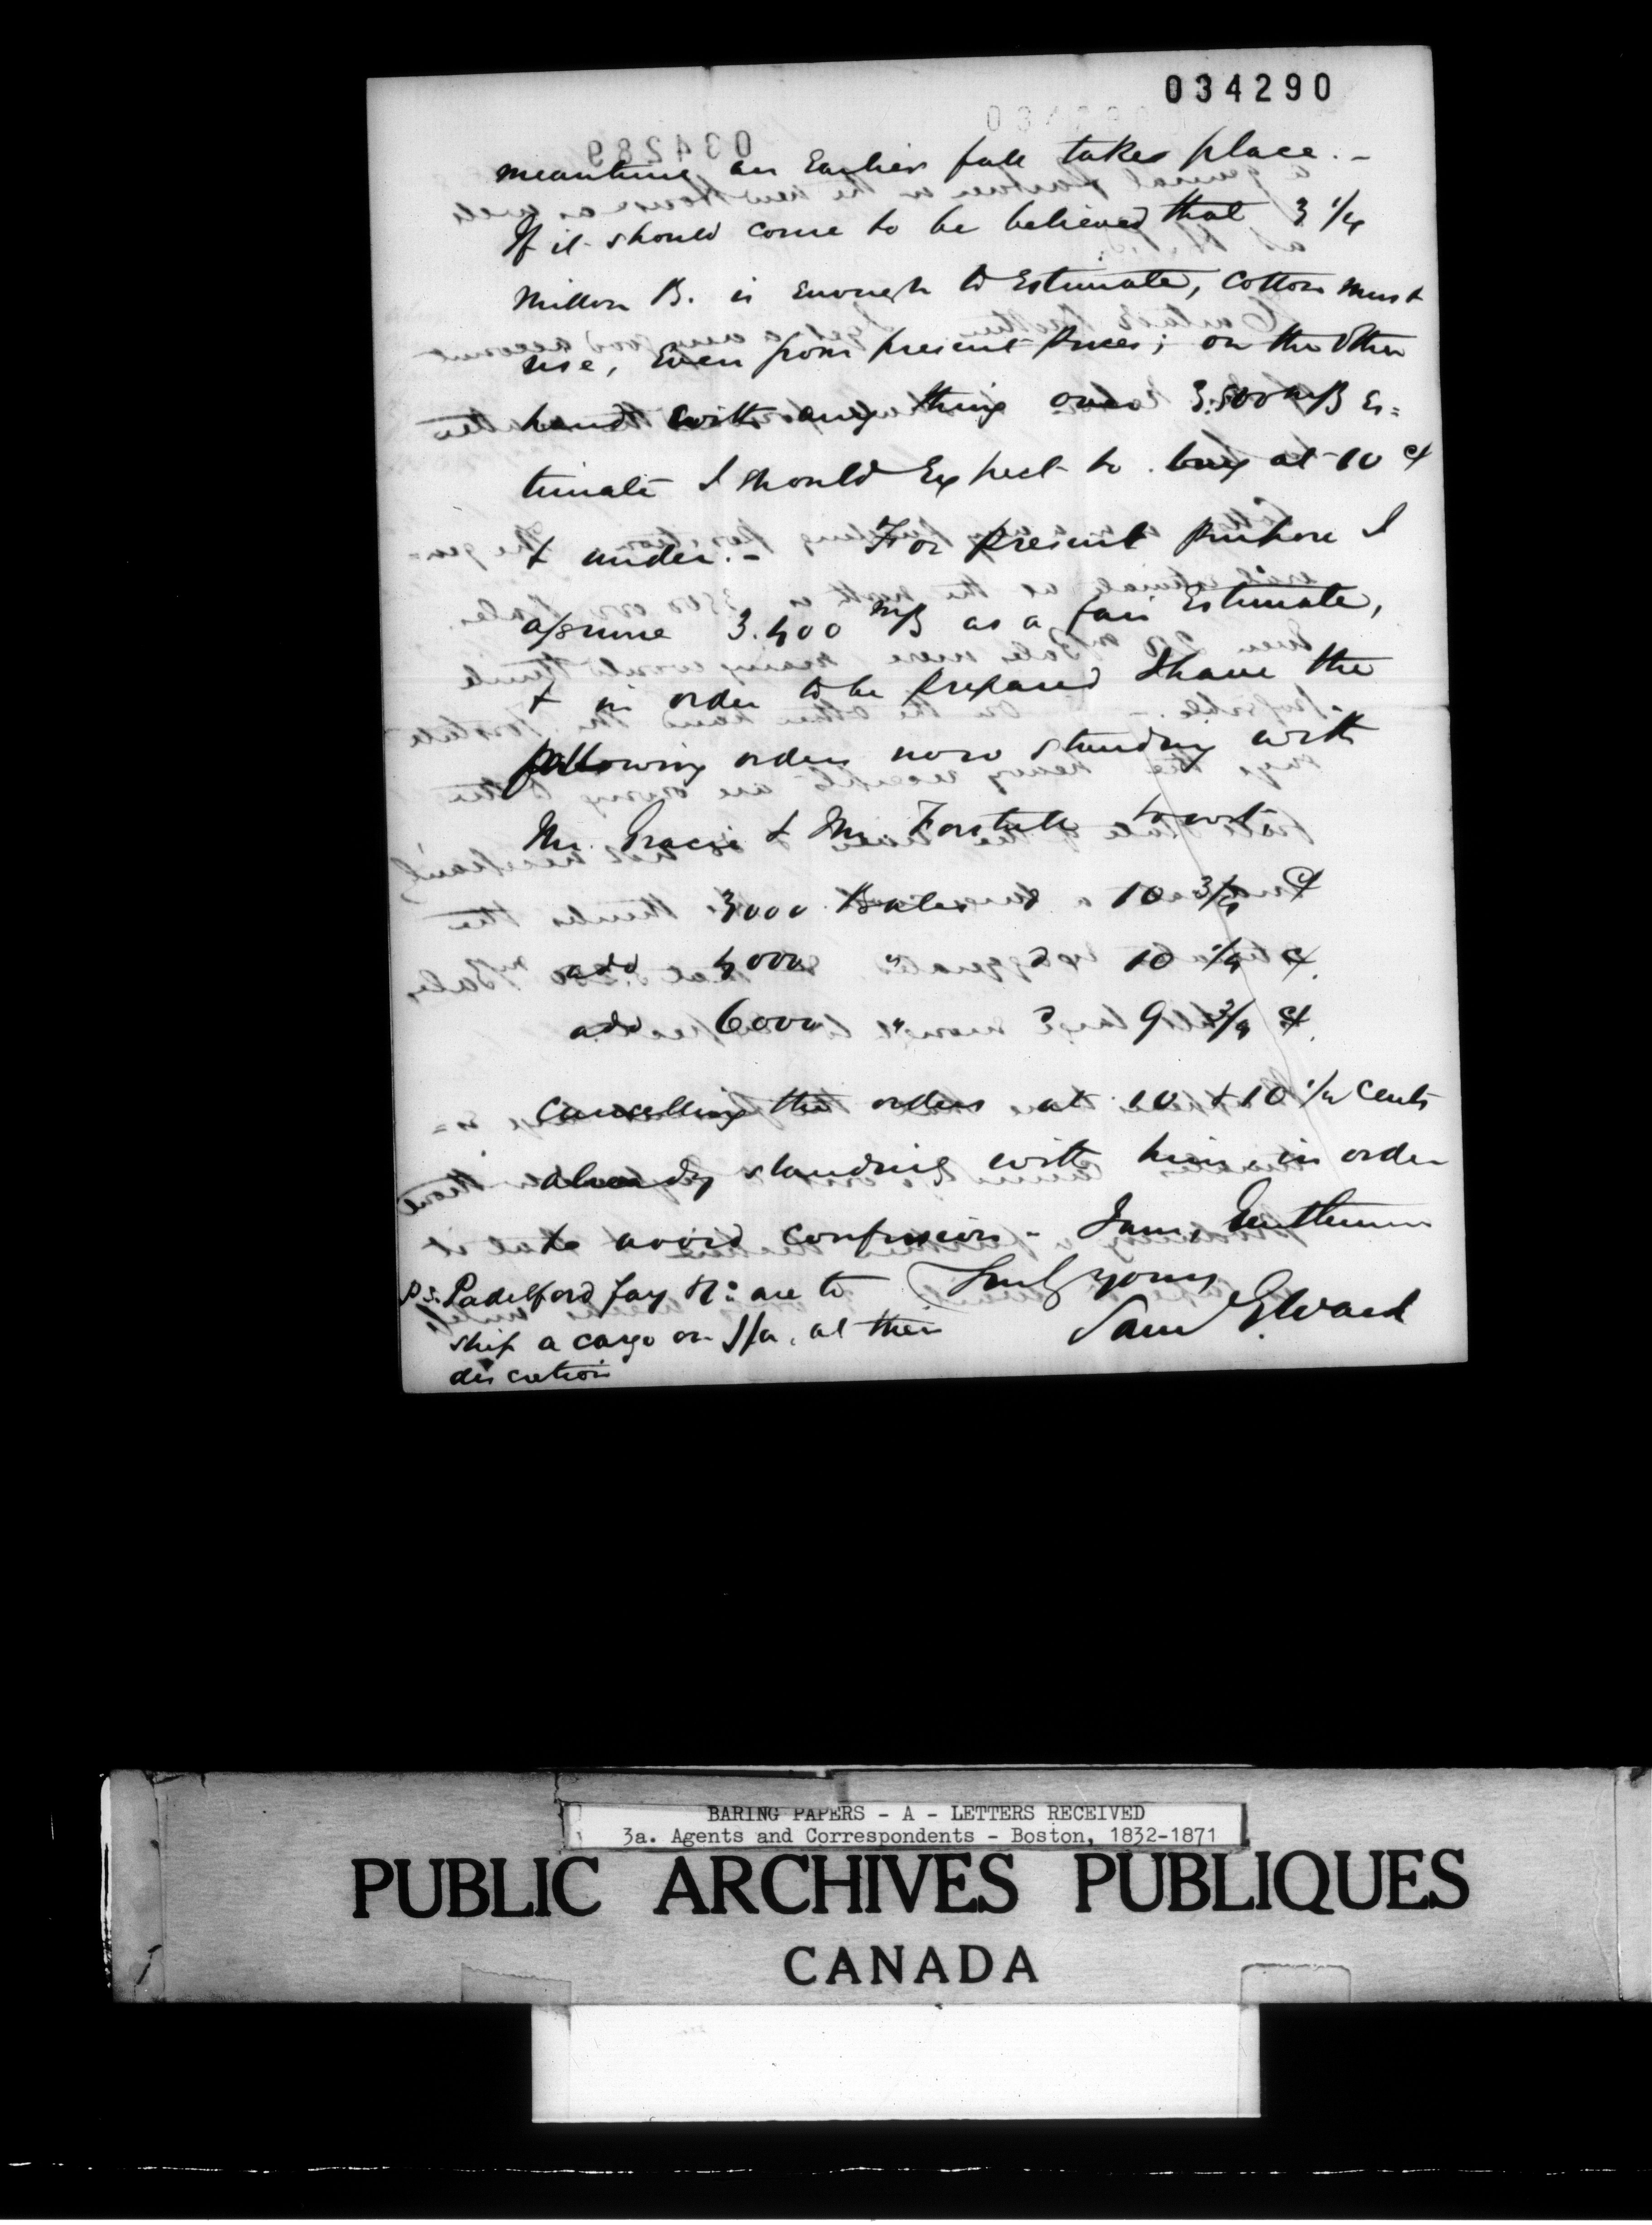 034290
meantime an Earlier fall takes place. -
If it should come to be believed that 3 1/4
Million B. is Enough to Estimate, Cotton must
rise, Even from present Prices; on the Other
hand with any thing over 3.500 m/B Es=
timate I should Expect to buy at 10 ct
& under. - For present purpose I
assume 3.400 m/B as a fair Estimate,
& in order to be prepared I have the
following orders now standing with
Mr. Gracie & Mr. Forstall to wit
3000 Bales @ 10 3/4 ct
add 4000 " @ 10 1/4 ct.
add 6000 " @ 9 3/4 ct.
Cancelling the orders at 10 & 10 1/2 Cents
already standing with him, in order
to avoid confusion - I am, Gentlemen
Truly yours
Saml G Ward
P.S. Padelford Fay & Co are to
ship a cargo on J/a, at their
discretion
BARING PAPERS - A - LETTERS RECEIVED
3a. Agents and Correspondents - Boston, 1832-1871
PUBLIC ARCHIVES PUBLIQUES
CANADA